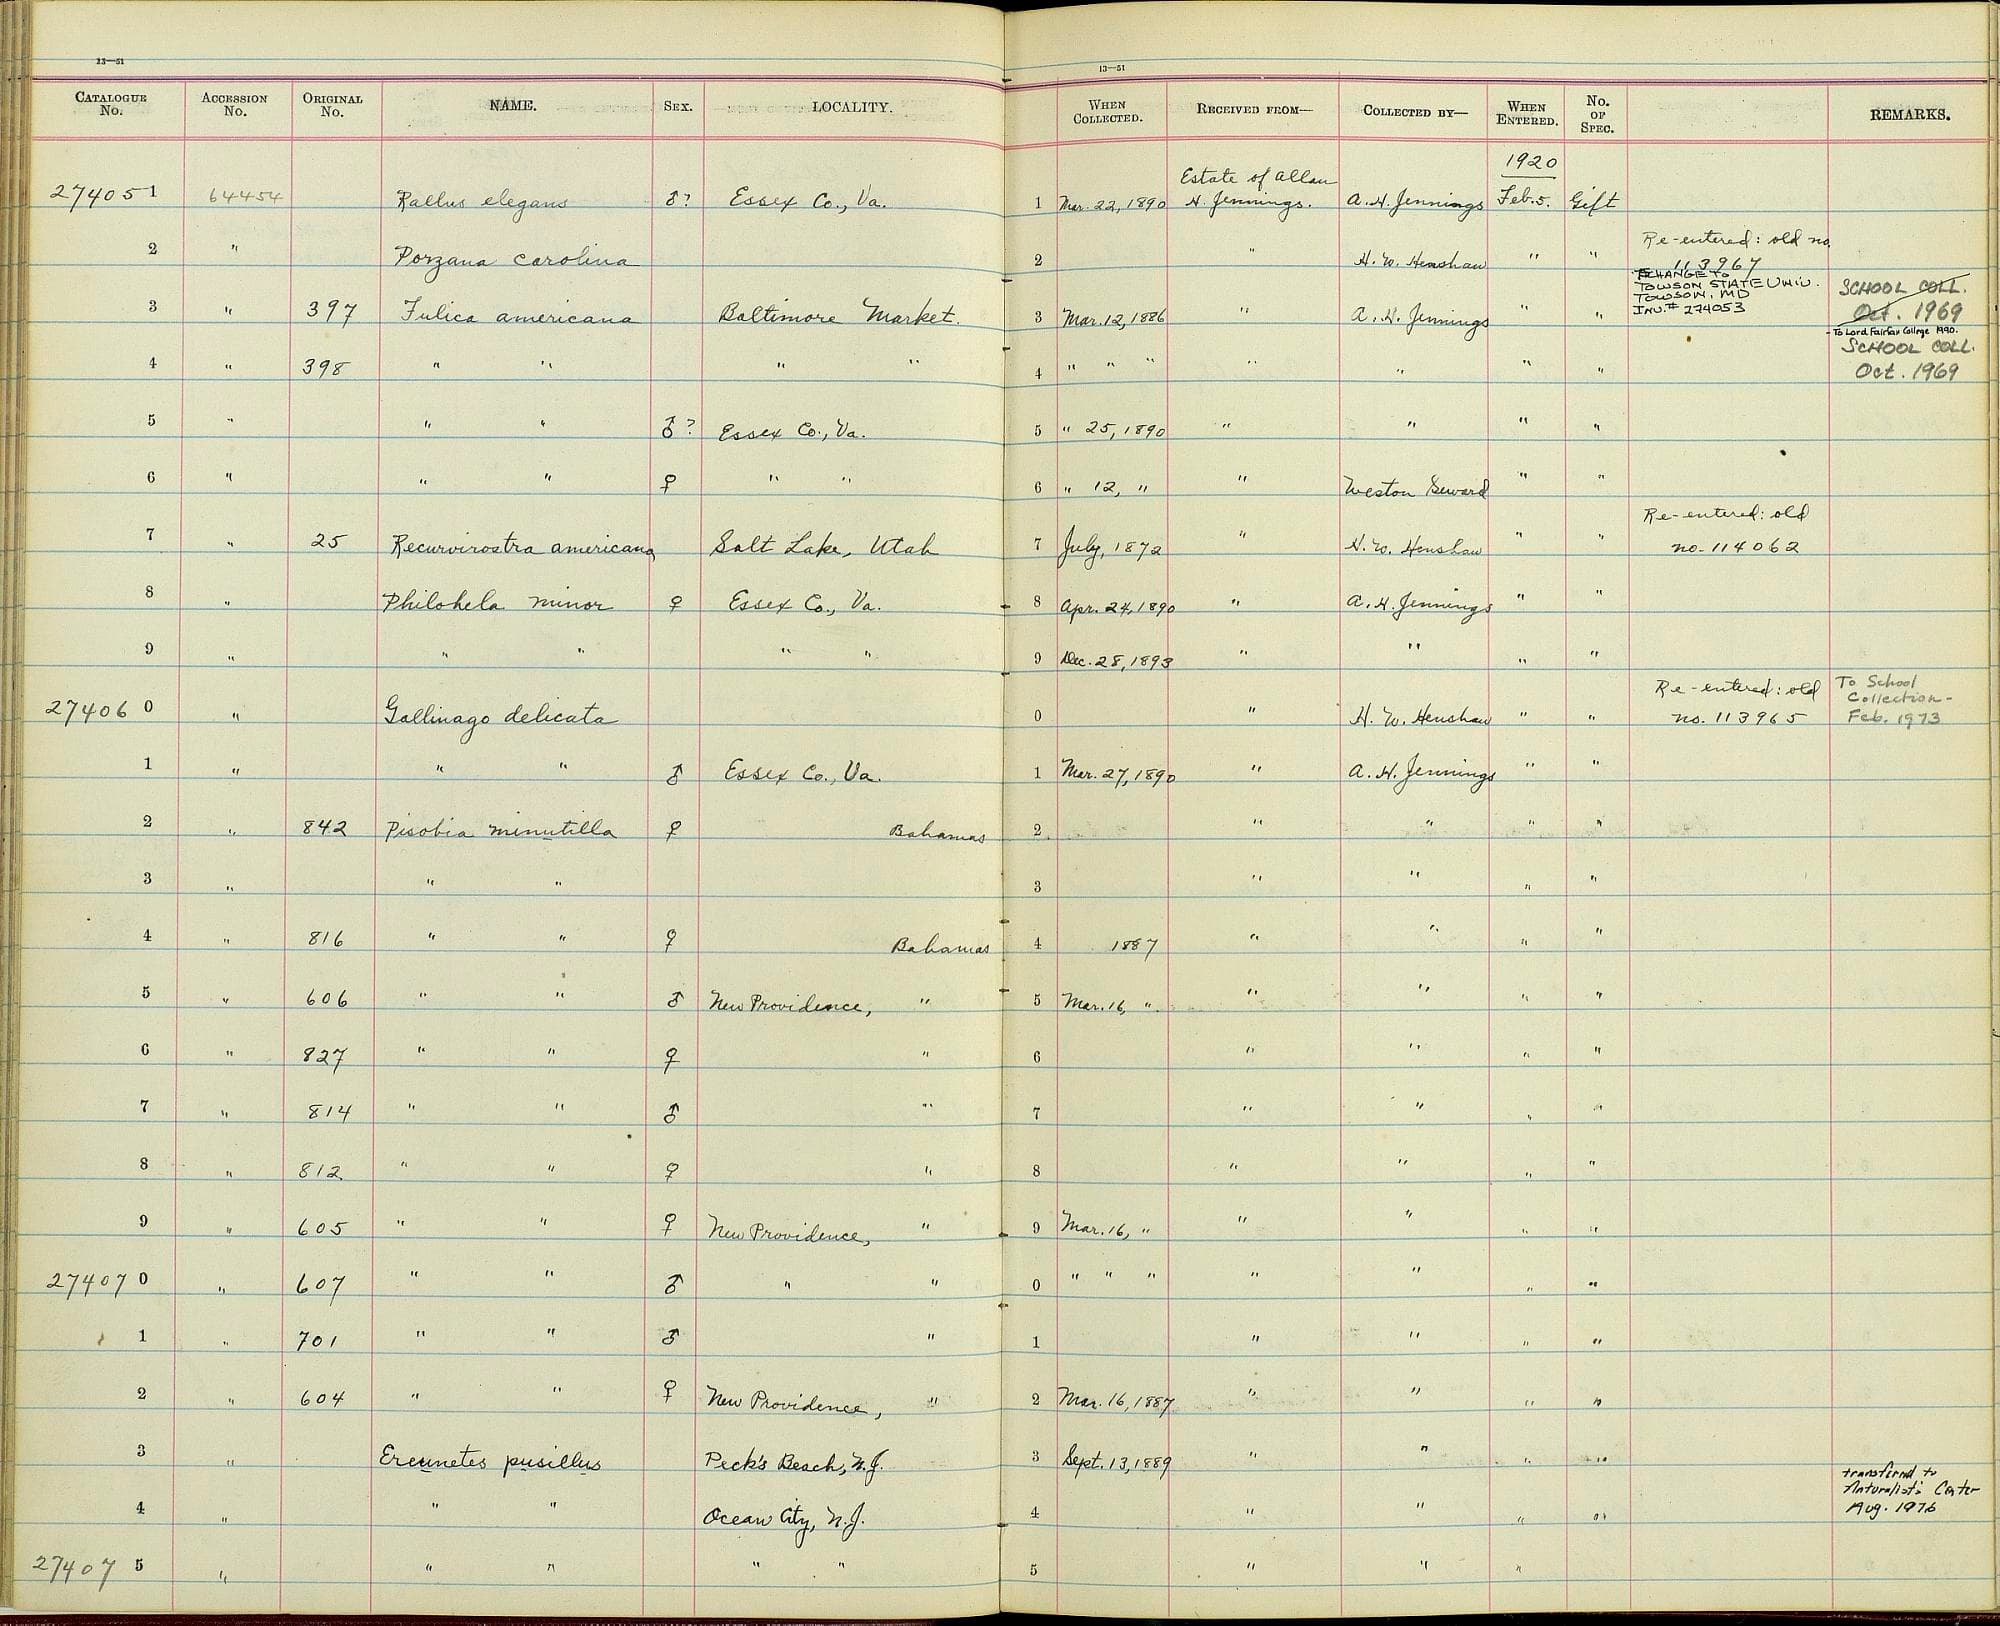 13—51
CATALOGUE No. ACCESSION No. ORIGINAL No. NAME. SEX. LOCALITY.
274051 64454 Rallus elegans ♂? Essex Co., Va.
2 " Porzana carolina
3 " 397 Fulica americana Baltimore Market.
4 " 398 " " " "
5 " " " ♂? Essex Co., Va.
6 " " " ♀ " "
7 " 25 Recurvirostra americana Salt Lake, Utah
8 " Philohela minor ♀ Essex Co., Va.
9 " " " " "
274060 " Gallinago delicata
1 " " " ♂ Essex Co., Va.
2 " 842 Pisobia minutilla ♀ Bahamas
3 " " "
4 " 816 " " ♀ Bahamas
5 " 606 " " ♂ New Providence, "
6 " 827 " " ♀ "
7 " 814 " " ♂ "
8 " 812 " " ♀ "
9 " 605 " " ♀ New Providence, "
274070 " 607 " " ♂ " "
1 " 701 " " ♂ "
2 " 604 " " ♀ New Providence, "
3 " Ereunetes pusillus Peck's Beach, N.J.
4 " " " Ocean City, N.J.
274075 " " " " "
13—51
WHEN COLLECTED. RECEIVED FROM— COLLECTED BY— WHEN ENTERED. No. OF SPEC. REMARKS.
1920
Estate of Allan
1 Mar. 22, 1890 H. Jennings. A. H. Jennings Feb. 5. Gift
Re-entered: old no.
2 " H. W. Henshaw " " 113967
EXCHANGE TO
TOWSON STATE UNIV.
TOWSON, MD
INV.# 274053
SCHOOL COLL.
Oct. 1969
3 Mar. 12, 1886 " A. H. Jennings " "
- To Lord Fairfax College 1990.
SCHOOL COLL.
Oct. 1969
4 " " " " " " "
5 " 25, 1890 " " " "
6 " 12, " " Weston Seward " "
Re-entered: old
7 July, 1872 " H. W. Henshaw " " no. 114062
8 Apr. 24, 1890 " A. H. Jennings " "
9 Dec. 28, 1893 " " " "
Re-entered: old
To School
Collection-
Feb. 1973
0 " H. W. Henshaw " " no. 113965
1 Mar. 27, 1890 " A. H. Jennings " "
2 " " " "
3 " " " "
4 1887 " " " "
5 Mar. 16, " " " " "
6 " " " "
7 " " " "
8 " " " "
9 Mar. 16, " " " " "
0 " " " " " " "
1 " " " "
2 Mar. 16, 1887 " " " "
3 Sept. 13, 1889 " " " "
transferred to
Naturalist's Center
Aug. 1976
4 " " " "
5 " " "